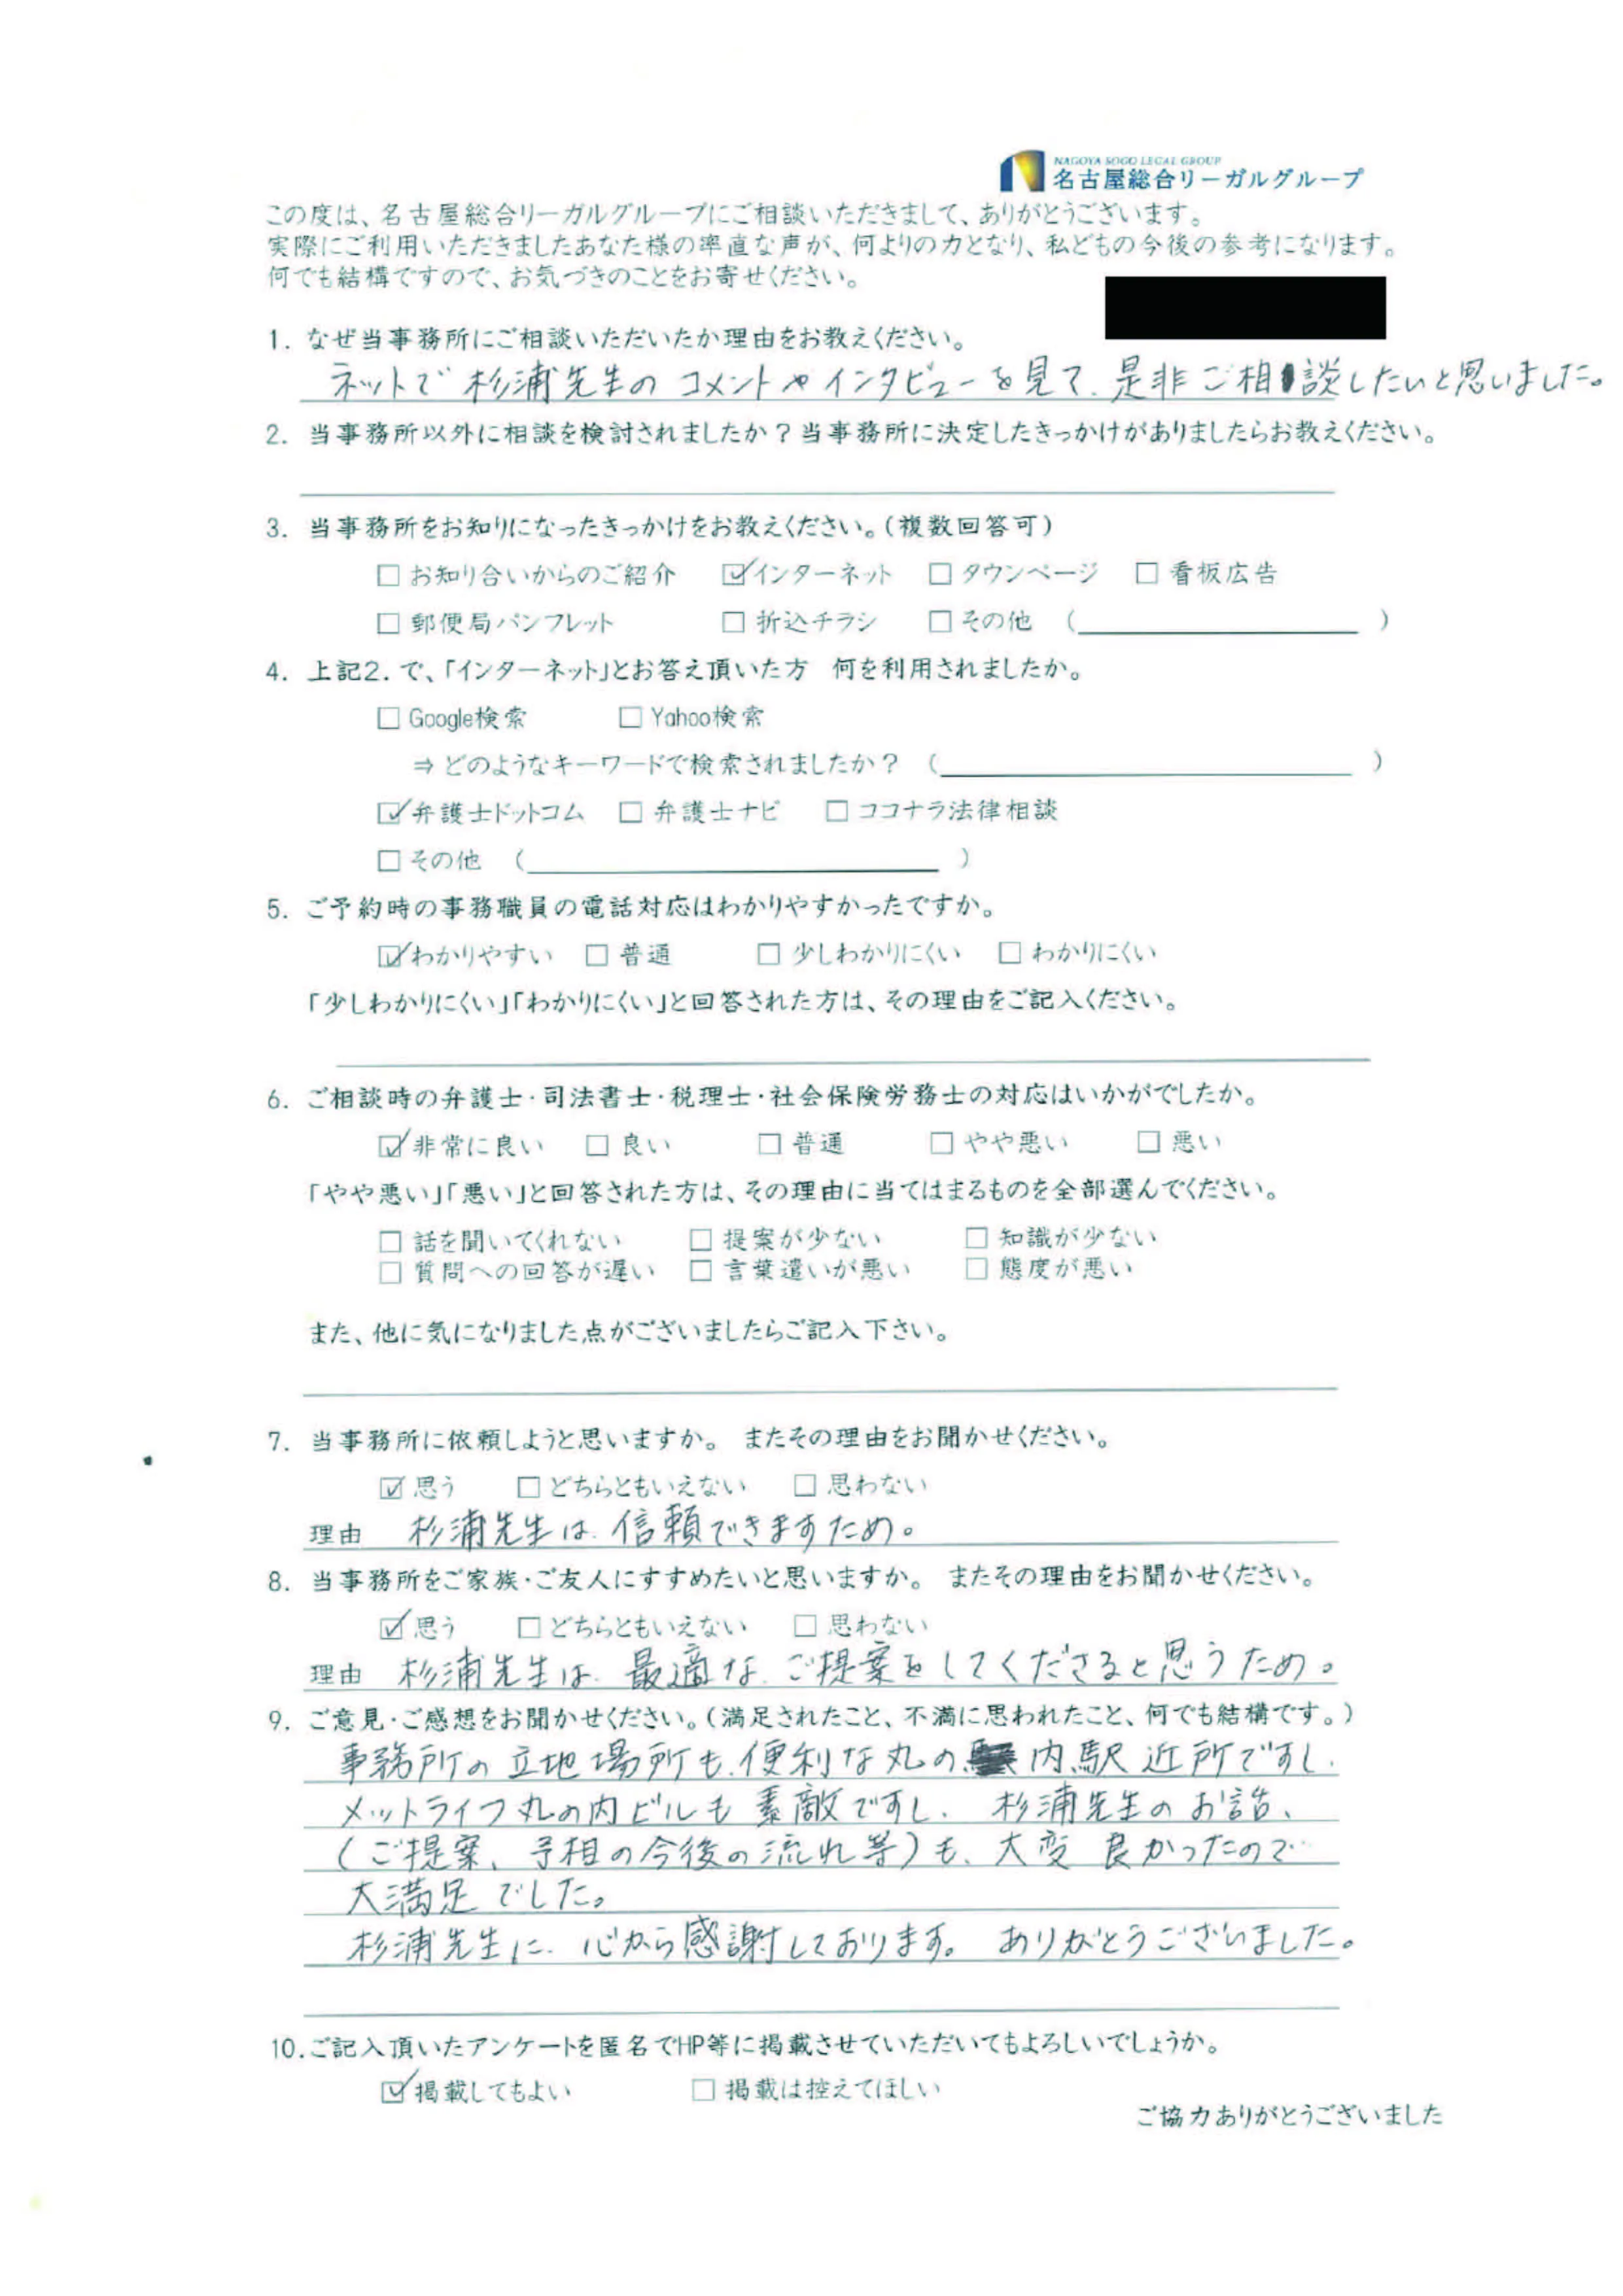 NAGOYA SOGO LEGAL GROUP
名古屋総合リーガルグループ
この度は、名古屋総合リーガルグループにご相談いただきまして、ありがとうございます。
実際にご利用いただきましたあなた様の率直な声が、何よりの力となり、私どもの今後の参考になります。
何でも結構ですので、お気づきのことをお寄せください。
1. なぜ当事務所にご相談いただいたか理由をお教えください。
ネットで杉浦先生のコメントやインタビューを見て、是非ご相談したいと思いました。
2. 当事務所以外に相談を検討されましたか？当事務所に決定したきっかけがありましたらお教えください。
3. 当事務所をお知りになったきっかけをお教えください。（複数回答可）
□ お知り合いからのご紹介 ☑インターネット □ タウンページ □ 看板広告
□ 郵便局パンフレット □ 折込チラシ □ その他 （ ）
4. 上記2. で、「インターネット」とお答え頂いた方　何を利用されましたか。
□ Google検索 □ Yahoo検索
⇒ どのようなキーワードで検索されましたか？ （ ）
☑弁護士ドットコム □ 弁護士ナビ □ ココナラ法律相談
□ その他 （ ）
5. ご予約時の事務職員の電話対応はわかりやすかったですか。
☑わかりやすい □ 普通 □ 少しわかりにくい □ わかりにくい
「少しわかりにくい」「わかりにくい」と回答された方は、その理由をご記入ください。
6. ご相談時の弁護士・司法書士・税理士・社会保険労務士の対応はいかがでしたか。
☑非常に良い □ 良い □ 普通 □ やや悪い □ 悪い
「やや悪い」「悪い」と回答された方は、その理由に当てはまるものを全部選んでください。
□ 話を聞いてくれない □ 提案が少ない □ 知識が少ない
□ 質問への回答が遅い □ 言葉遣いが悪い □ 態度が悪い
また、他に気になりました点がございましたらご記入下さい。
7. 当事務所に依頼しようと思いますか。 またその理由をお聞かせください。
☑思う □どちらともいえない □ 思わない
理由 杉浦先生は、信頼できますため。
8. 当事務所をご家族・ご友人にすすめたいと思いますか。 またその理由をお聞かせください。
☑思う □どちらともいえない □ 思わない
理由 杉浦先生は、最適な、ご提案をしてくださると思うため。
9. ご意見・ご感想をお聞かせください。（満足されたこと、不満に思われたこと、何でも結構です。）
事務所の立地場所も、便利な丸の内駅近所ですし、
メットライフ丸の内ビルも素敵ですし、杉浦先生のお話、
（ご提案、予想の今後の流れ等）も、大変良かったので
大満足でした。
杉浦先生に、心から感謝しております。 ありがとうございました。
10.ご記入頂いたアンケートを匿名でHP等に掲載させていただいてもよろしいでしょうか。
☑掲載してもよい □ 掲載は控えてほしい
ご協力ありがとうございました